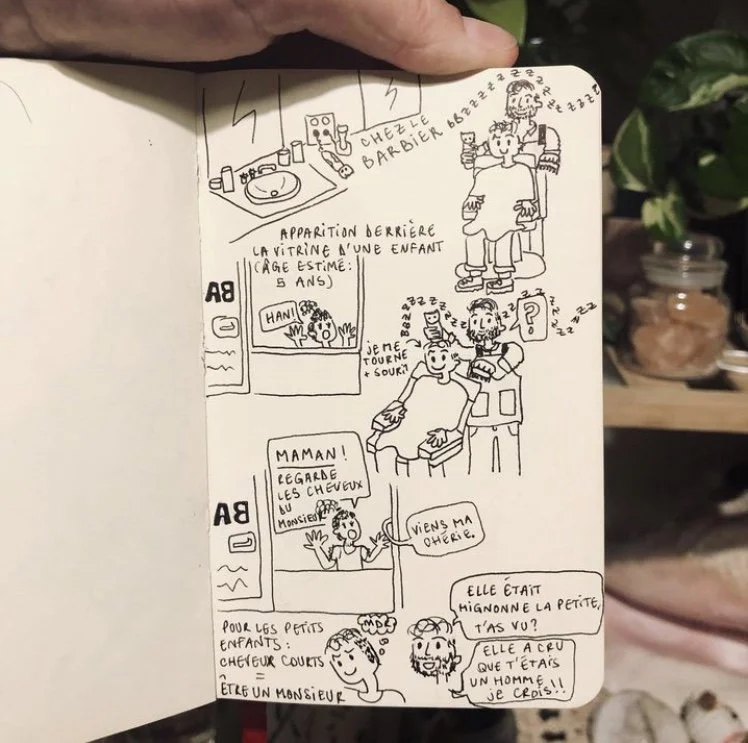 CHEZ LE
BARBIER
BBZZZZZZZZZZZZZZZZZ
APPARITION DERRIÈRE
LA VITRINE D'UNE ENFANT
(ÂGE ESTIMÉ:
5 ANS)
BA
HAN!
BBZZZZZZZZZZZZZZ
?
JE ME
TOURNE
+ SOURIT
MAMAN!
REGARDE
LES CHEVEUX
DU
MONSIEUR
BA
VIENS MA
CHÉRIE.
POUR LES PETITS
ENFANTS:
CHEVEUX COURTS
=
ÊTRE UN MONSIEUR
MDR
ELLE ÉTAIT
MIGNONNE LA PETITE,
T'AS VU?
ELLE A CRU
QUE T'ÉTAIS
UN HOMME
JE CROIS!!